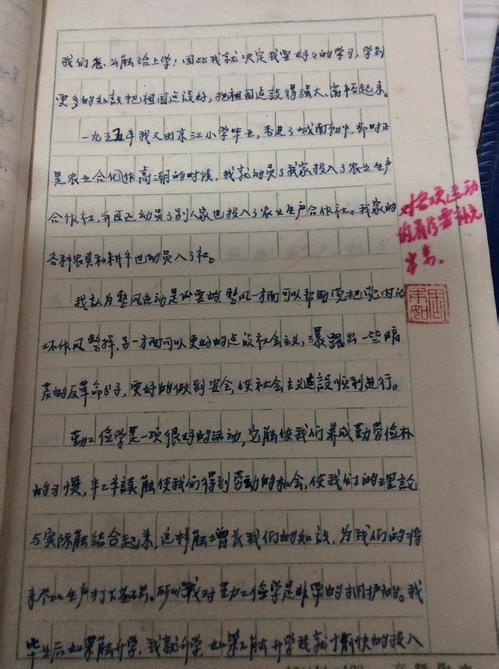 我们怎么能给上学！因此我就决定我要好好的学习，学到
更多的知识把祖国建设好，把祖国建设得强大、富裕起来。
一九五五年我又由东江小学毕业，考进了城南初中，那时正
是农业合作化高潮的时候，我就动员了我家投入了农业生产
合作社，并且还动员了别人家也投入了农业生产合作社。我家的
各种农具和耕牛也动员入了社。
我认为整风运动是必要的，整风一方面可以帮助党把党内的
工作作风整掉，另一方面可以更好的建设社会主义，暴露出一些暗
藏的反革命分子，更好的做到安全，使社会主义建设顺利进行。
勤工俭学是一项很好的运动，它能使我们养成勤劳俭朴
的习惯，半工半读能使我们得到劳动的机会，使我们的理论
与实际能结合起来，这样能增长我们的知识，为我们的将
来参加生产打下基础。所以我对勤工俭学是非常的拥护的。我
毕业后如果能升学，我就升学，如果不能升学我就愉快的投入
对各项运动
的看法要补充